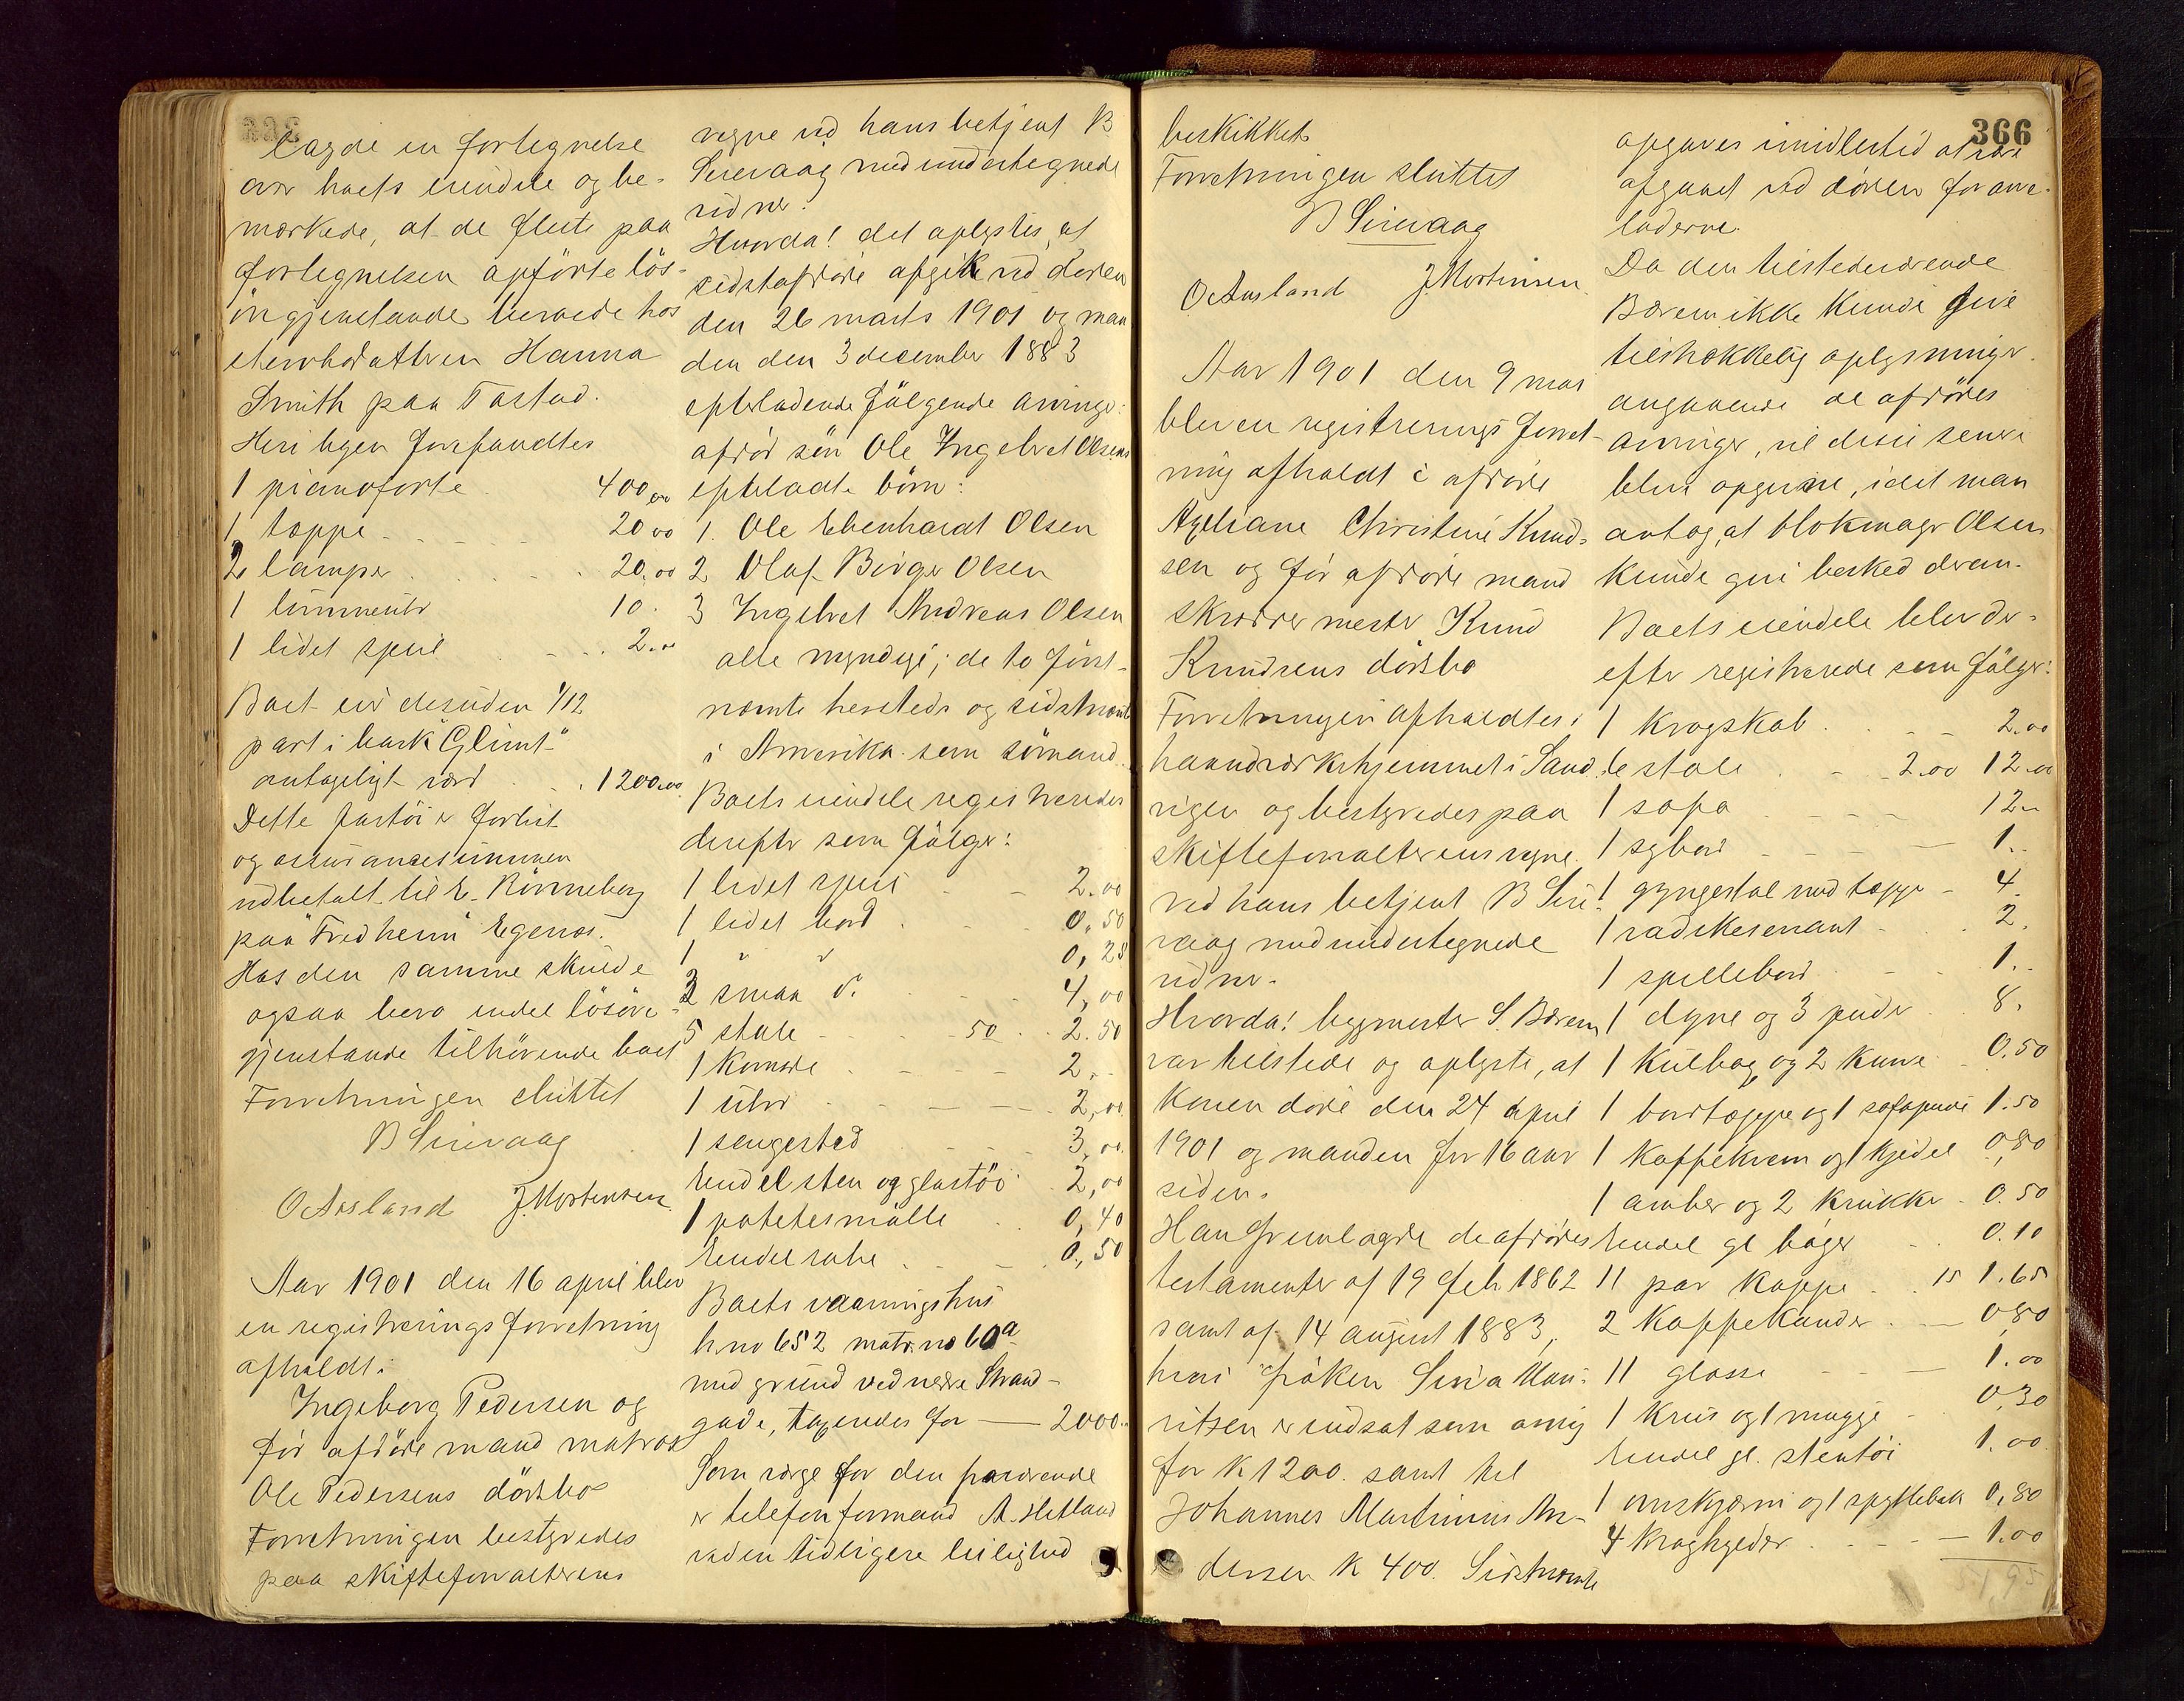 lagde en fortegnelse
over boets eiendele og be-
mærkede, at de fleste paa
fortegnelsen opförte lös-
öregjenstande beroede hos
Hanna
Smith paa Tastad.
Heri byen forefandtes
1 pianoforte 400,00
1 tæppe 20 00
2 lamper 20.00
1 10.
1 lidet speil 2.00
Boet eier desuden 1/12
part i bark "Glimt"
antageligt værd 1200.00
Dette fartöi er forlist
og assurancesummen
udbetalt til E. Rönneberg
paa "Fredheim" Egenæs.
Hos den samme skulde
ogsaa bero endel lösöre-
gjenstande tilhörende boet
Forretningen sluttet
B Sirevaag
O Aasland J. Mortensen
Aar 1901 den 16 april blev
en registreringsforretning
afholdt i
Ingeborg Pedersen og
för afdöde mand matros
Ole Pedersens dödsbo
Forretningen bestyredes
paa skifteforvalterens
vegne ved hans betjent B
Sirevaag med undertegnede
vidner.
Hvorda! det oplystes, at
sidstafdöde afgik ved döden
den 26 marts 1901 og man
den den 3 december 1883
efterladende fölgende arvinger:
afdöd sön Ole Ingebret Olsens
efterladte börn:
1. Ole Ebenhardt Olsen
2 Olaf Birger Olsen
3 Ingebret Andreas Olsen
alle myndige; de to först-
nævnte hersteds og sidstnævnte
i Amerika som sömand.
Boets eiendele registreredes
derefter som fölger:
1 lidet speil 2.00
1 lidet bord 0.50
1 " " 0,25
2 smaa d. 4,00
5 stole 50 2.50
1 Komode 2.
1 uhr 2,00
1 sengested 3,00
Endel sten og glastöi 2,00
1 potetesmölle 0,40
Endel 0,50
Boets vaaningshus
h. no 652 matr. no 60a
med grund ved nedre Strand-
gade, taxeredes for 2000.
Som værge for den fraværende
er telefonformand A. Hetland
ved en tidligere leilighed
366
beskikket.
Forretningen sluttet
B Sirevaag
O Aasland J. Mortensen
Aar 1901 den 9 mai
blev en registreringsforret-
ning afholdt i afdöde
Christine Knud-
sen og för afdöde mand
skræddermester Knud
Knudsens dödsbo
Forretningen afholdtes i
haandværkerhjemmet i Sand-
vigen og bestyredes paa
skifteforvalterens vegne
ved hans betjent B Sire-
vaag med undertegnede
vidner.
Hvorda! bygmester S. Bærem
var tilstede og oplyste, at
Konen döde den 24 april
1901 og manden for 16 aar
siden.
Han fremlagde de afdödes
testamenter af 19 Feb. 1862
samt af 14 august 1883,
hvori fröken Sina Mau-
ritzen er indsat som arving
for K 1200. samt til
Johannes Martinius An-
dersen K 400. Sidstnævnte
opgaves imidlertid at være
afgaaet ved döden for arve-
laderne.
Da den tilstedeværende
Bærem ikke Kunde give
tilstrækkelig oplysninger
angaaende de afdödes
arvinger, vil disse senere
blive opgivne, idet man
antog, at blokmager Olsen
Kunde give besked derom.
Boets eiendele blev der-
efter registrerede som fölger:
1 krogskab 2.00
6 stole 2.00 12.00
1 sofa 12.
1 sybord 1.
1 gyngestol med tæppe 4.
1 2.
1 spillebord 1.
1 dyne og 3 puder 8.
1 Kulbox og 2 Kurve 0.50
1 bordtæppe og 1 sofapude 1.50
1 Kaffekværn og 1 Kjedel 0,80
1 ambar og 2 Krukker 0.50
Endel gl böger 0.10
11 par Kopper 15 1.65
2 Kaffekander 0,80
11 glasse 1.00
1 Krus og 1 mugge 0,30
Endel gl. stentöi 1.00
1 ovnskjærm og 1 spyttebak 0,80
4 1.00